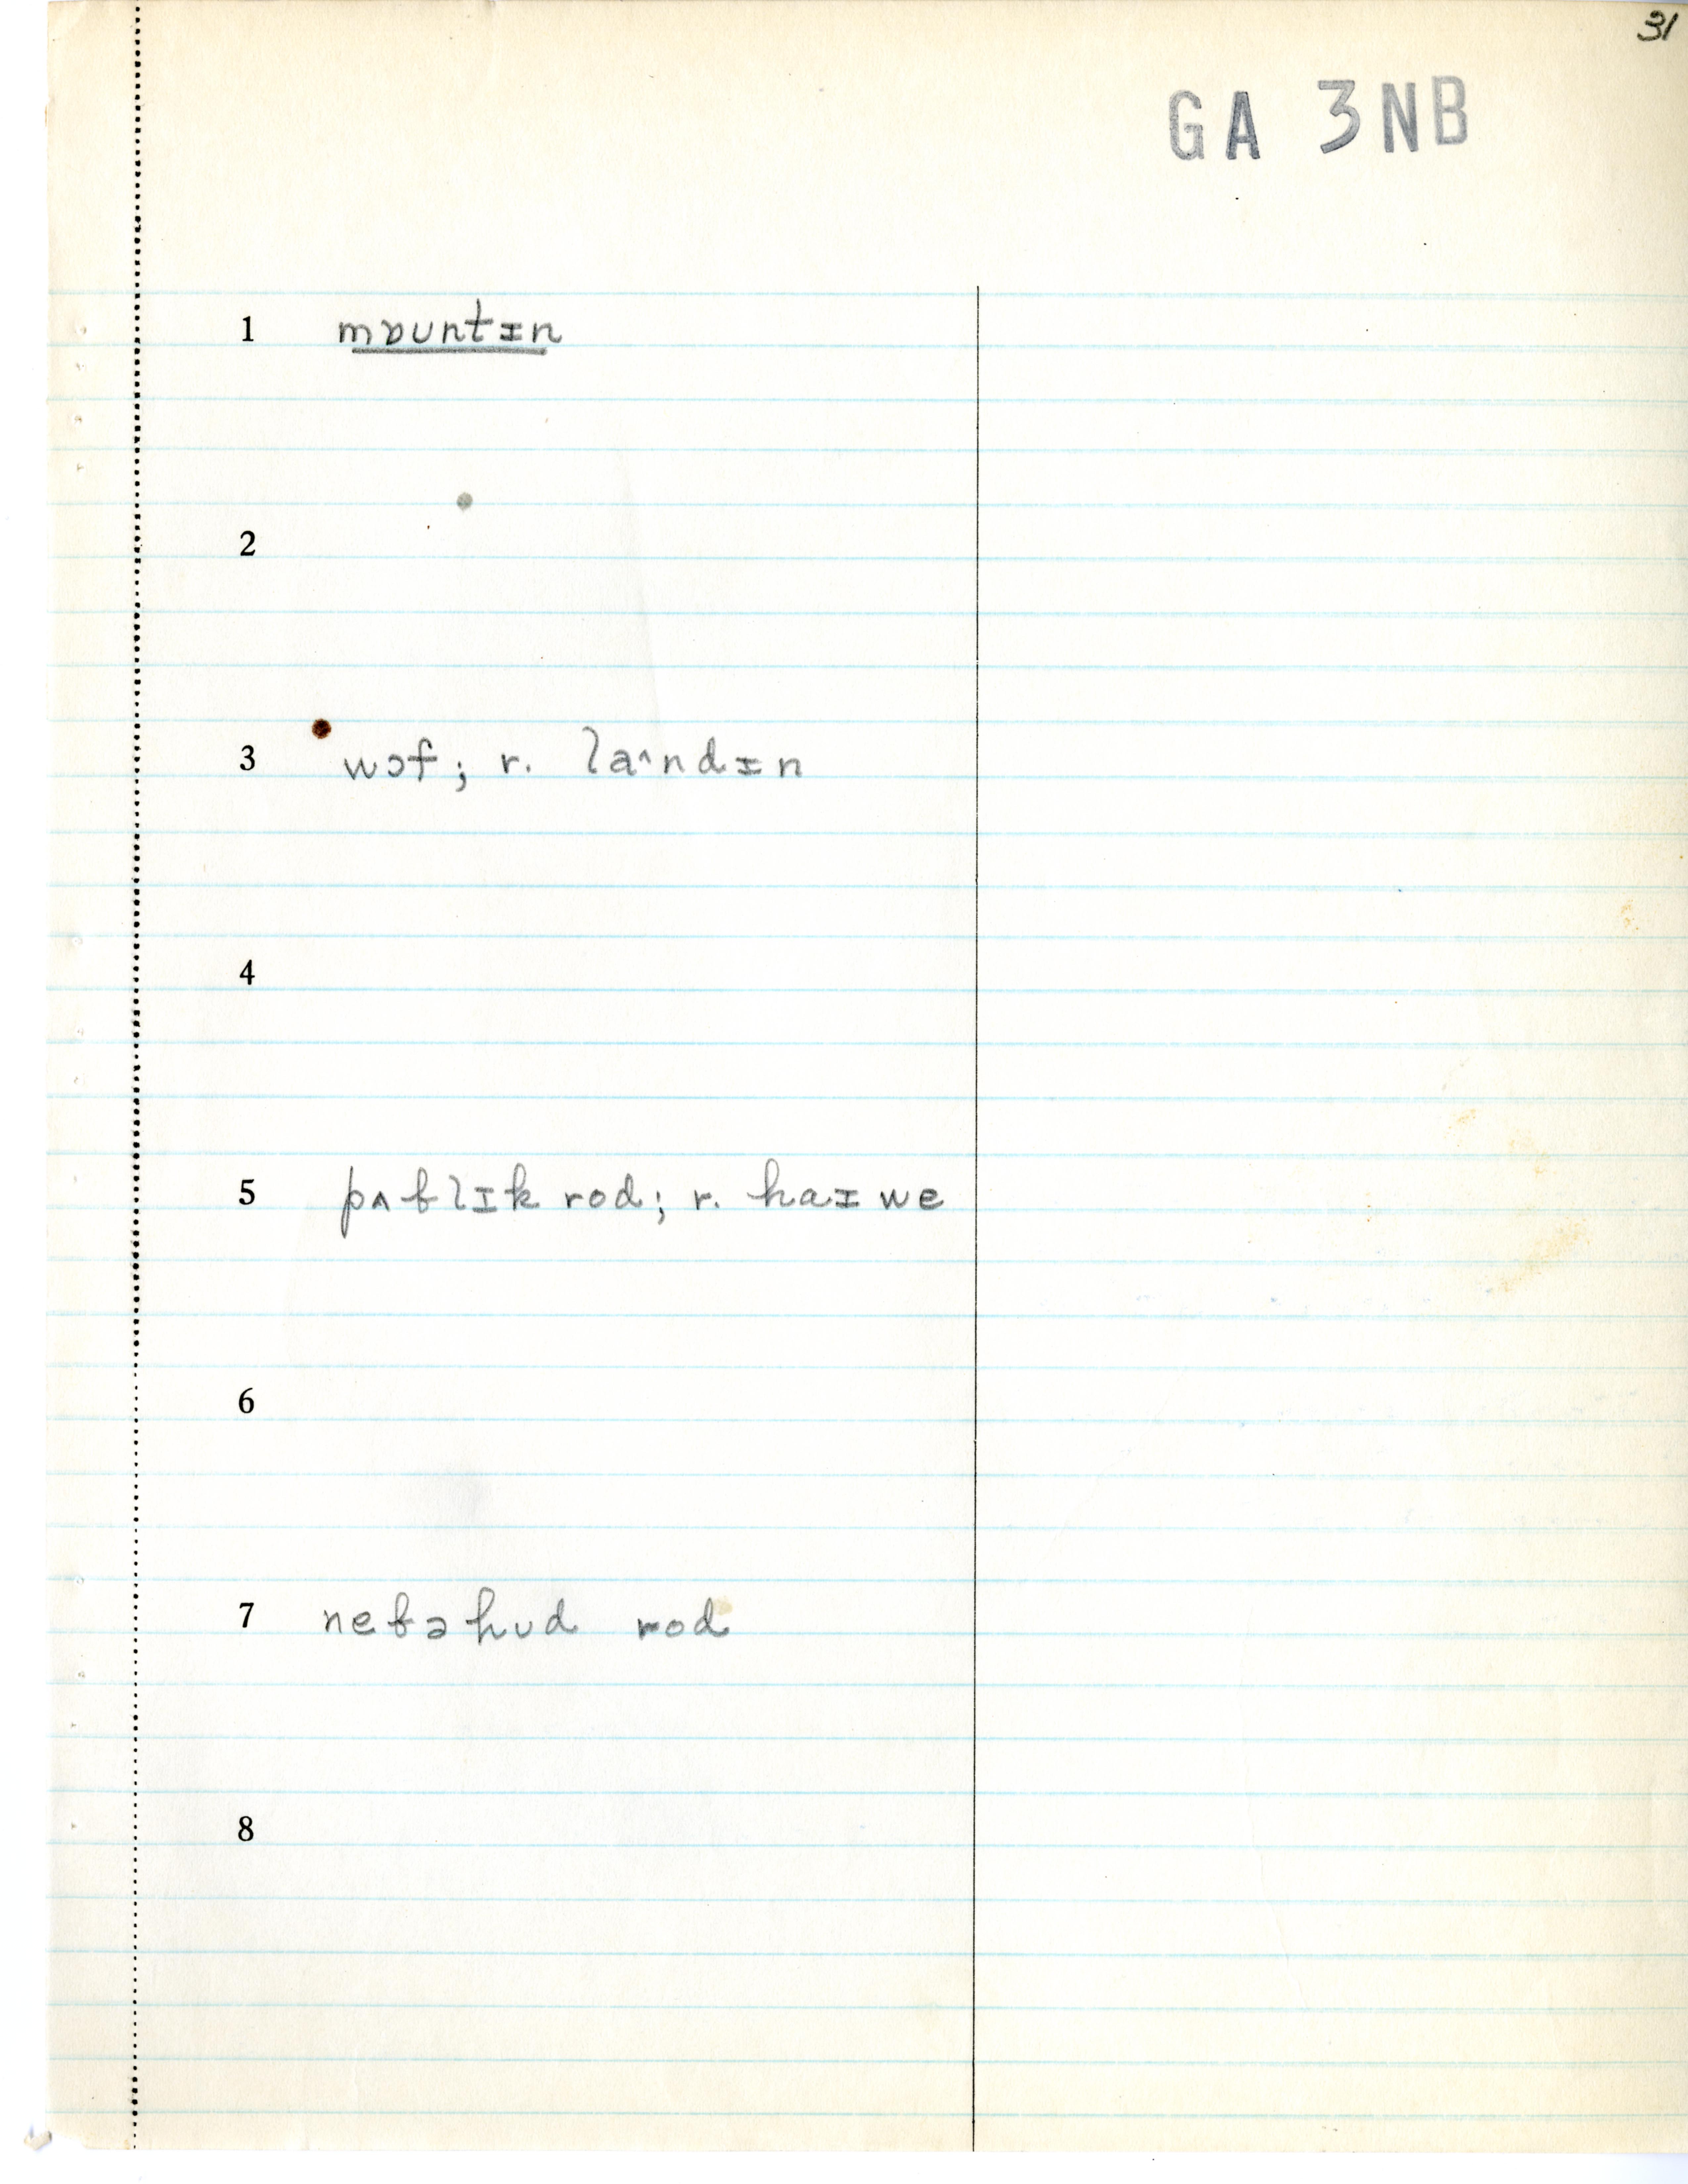 31
GA 3NB
1 mɒuntɪn
2
3 wɔf; r. la^ndɪn
4
5 pʌblɪk rod; r. haɪwe
6
7 nebəhud rod
8